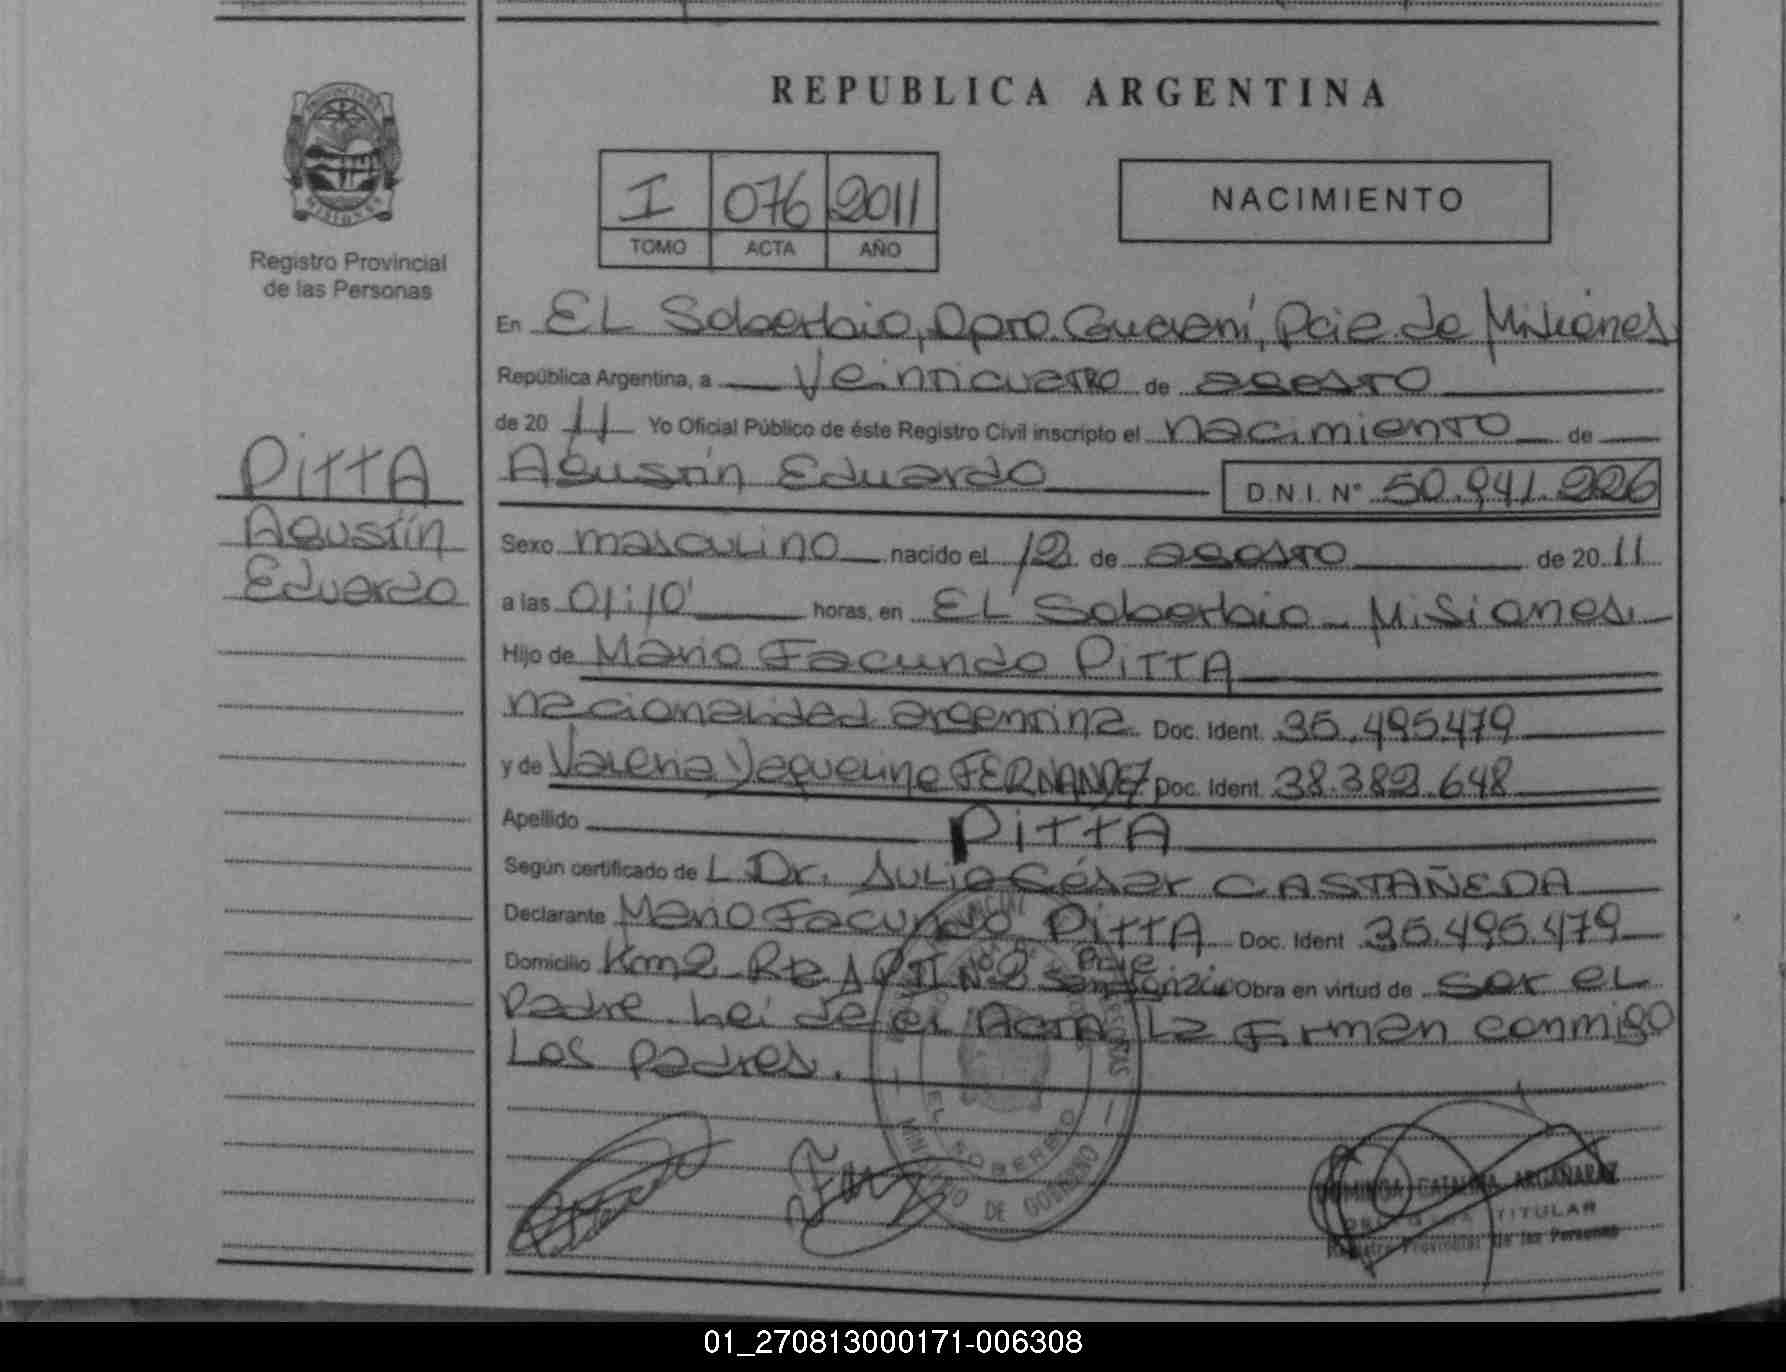 REPUBLICA ARGENTINA
PROVINCIA DE
MISIONES
Registro Provincial
de las Personas
I 076 2011
TOMO ACTA AÑO
NACIMIENTO
En EL Soberbio, Dpto. Guaraní, Pcie. de Misiones
República Argentina, a Veinticuatro de agosto
de 20 11 Yo Oficial Público de éste Registro Civil inscripto el nacimiento de
Agustín Eduardo D.N.I. N° 50.941.226
PITTA
Agustín
Eduardo
Sexo masculino nacido el 12 de agosto de 20 11
a las 01:10' horas, en EL Soberbio - Misiones.
Hijo de Mario Facundo PITTA
nacionalidad argentina Doc. Ident. 35.495.479
y de Valeria Yaqueline FERNANDEZ Doc. Ident. 38.382.648
Apellido PITTA
Según certificado de L Dr. Julio César CASTAÑEDA
Declarante Mario Facundo PITTA Doc. Ident 35.495.479
Domicilio Km2 Obra en virtud de ser el
Padre Leí de el Acta La firman conmigo
Los padres.
EL SOBERBIO
MINISTERIO DE GOBIERNO
CATALINA ARGAÑARAZ
TITULAR
Registro Provincial de las Personas
01_270813000171-006308